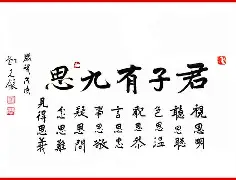 君子有九思
視思明
聽思聰
色思温
貌思恭
言思忠
事思敬
疑思問
忿思難
見得思義